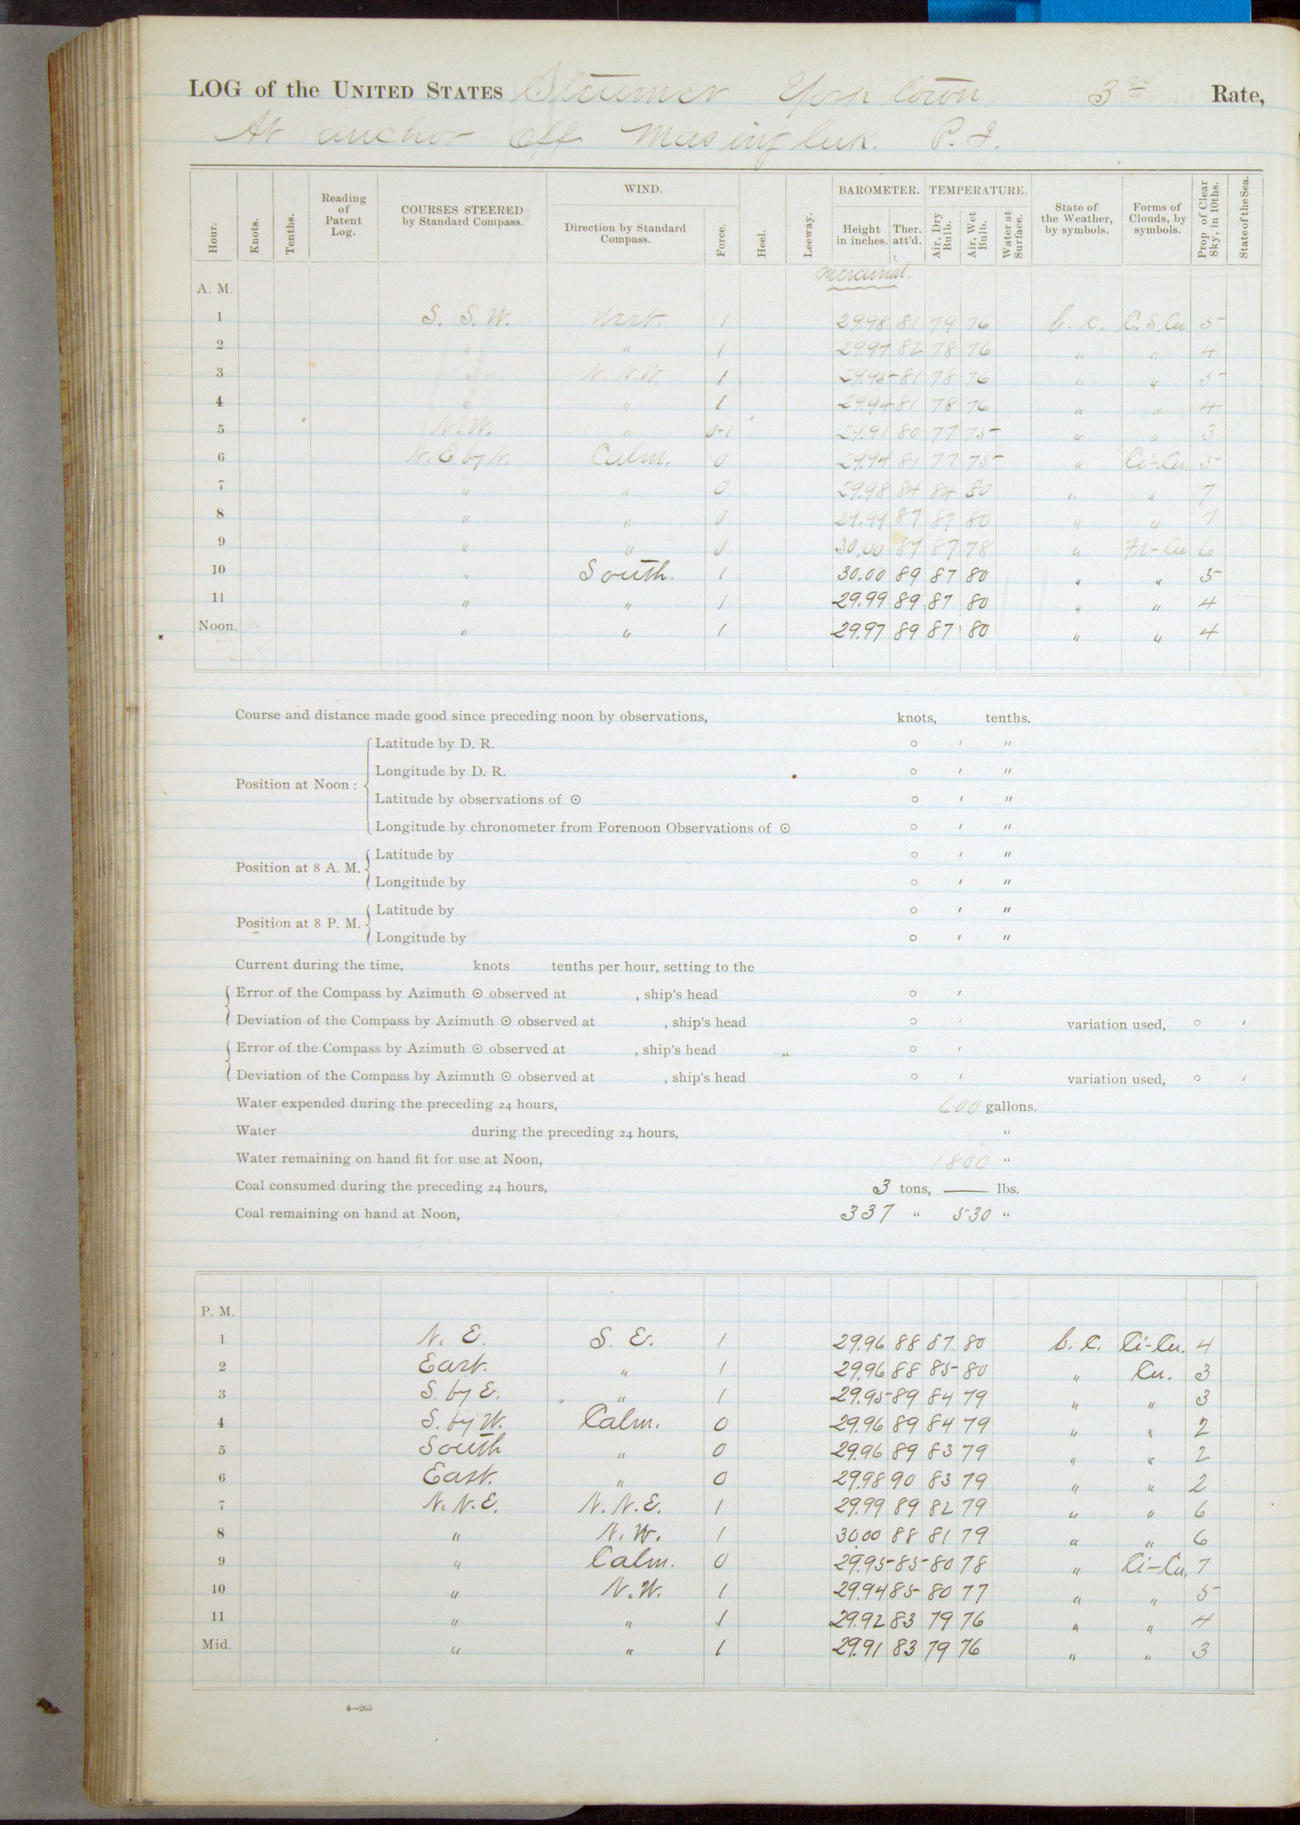 LOG of the UNITED STATES Steamer Yorktown 3rd Rate,
At anchor off Masingluk. P. I.
Hour. Knots. Tenths. Reading of Patent Log. COURSES STEERED by Standard Compass. WIND. Direction by Standard Compass. Force. Heel. Leeway. BAROMETER. Height in inches. Ther. att'd. TEMPERATURE. Air, Dry Bulb. Air, Wet Bulb. Water at Surface. State of the Weather, by symbols. Forms of Clouds, by symbols. Prop of Clear Sky, in 10ths. State of the Sea.
Mercurial.
A. M.
1 S. S. W. West. 1 29.98 81 79 76 b. c. C. S. Cu 5
2 " " 1 29.97 82 78 76 " " 4
3 " N. N. W. 1 29.95 81 78 76 " " 5
4 " " 1 29.94 81 78 76 " " 4
5 N. W. " 0-1 29.91 80 77 75 " " 3
6 N. E by N. Calm. 0 29.94 81 77 75 " Ci-Cu. 5
7 " " 0 29.98 84 84 80 " " 7
8 " " 0 29.99 87 87 80 " " 7
9 " " 0 30.00 89 87 78 " Fr-Cu 6
10 " South. 1 30.00 89 87 80 " " 5
11 " " 1 29.99 89 87 80 " " 4
Noon. " " 1 29.97 89 87 80 " " 4
Course and distance made good since preceding noon by observations, knots, tenths.
Position at Noon: Latitude by D. R. ° ′ ″
Longitude by D. R. ° ′ ″
Latitude by observations of ☉ ° ′ ″
Longitude by chronometer from Forenoon Observations of ☉ ° ′ ″
Position at 8 A. M. Latitude by ° ′ ″
Longitude by ° ′ ″
Position at 8 P. M. Latitude by ° ′ ″
Longitude by ° ′ ″
Current during the time, knots tenths per hour, setting to the
Error of the Compass by Azimuth ☉ observed at , ship's head ° ′
Deviation of the Compass by Azimuth ☉ observed at , ship's head ° ′ variation used, ° ′
Error of the Compass by Azimuth ☉ observed at , ship's head ° ′
Deviation of the Compass by Azimuth ☉ observed at , ship's head ° ′ variation used, ° ′
Water expended during the preceding 24 hours, 600 gallons.
Water during the preceding 24 hours, "
Water remaining on hand fit for use at Noon, 1800 "
Coal consumed during the preceding 24 hours, 3 tons, — lbs.
Coal remaining on hand at Noon, 337 " 530 "
P. M.
1 N. E. S. E. 1 29.96 88 87 80 b. c. Ci-Cu. 4
2 East. " 1 29.96 88 85 80 " Cu. 3
3 S. by E. " 1 29.95 89 84 79 " " 3
4 S. by W. Calm. 0 29.96 89 84 79 " " 2
5 South " 0 29.96 89 83 79 " " 2
6 East. " 0 29.98 90 83 79 " " 2
7 N. N. E. N. N. E. 1 29.99 89 82 79 " " 6
8 " N. W. 1 30.00 88 81 79 " " 6
9 " Calm. 0 29.95 85 80 78 " Ci-Cu. 7
10 " N. W. 1 29.94 85 80 77 " " 5
11 " " 1 29.92 83 79 76 " " 4
Mid. " " 1 29.91 83 79 76 " " 3
4—265